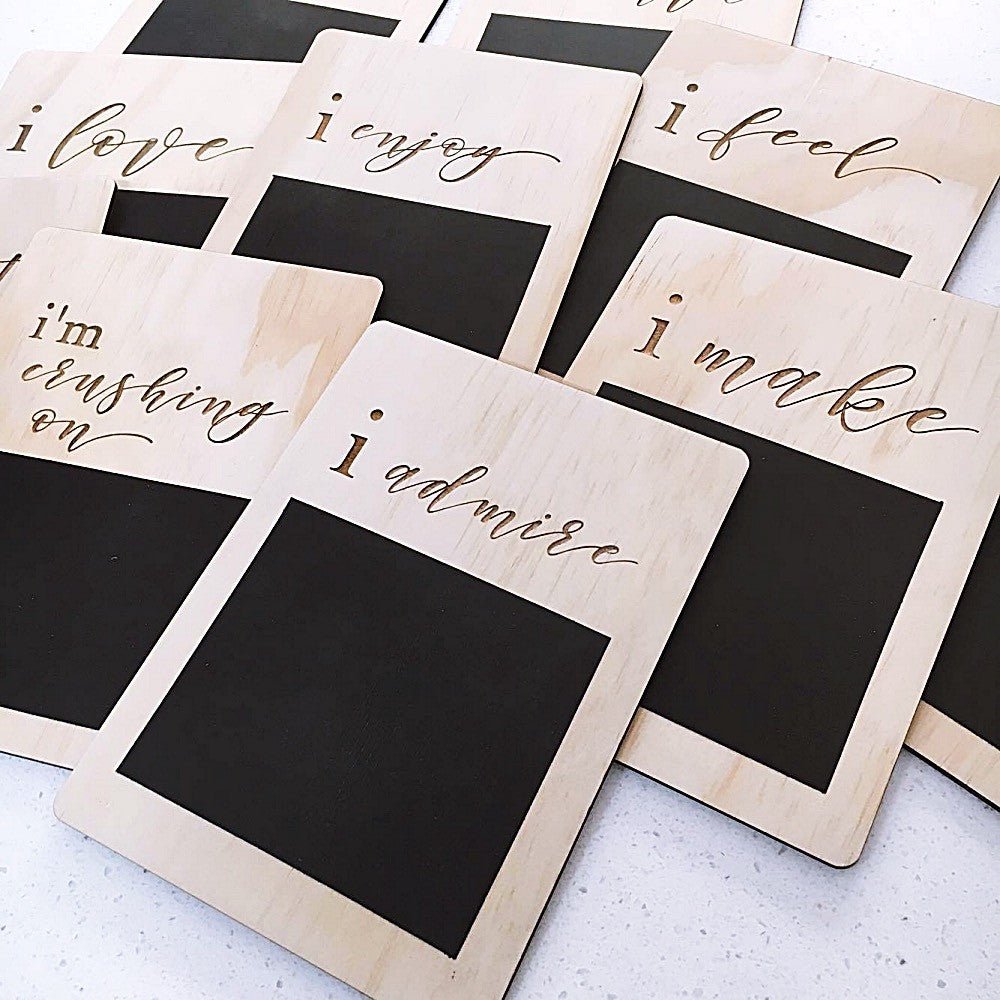 i love
i enjoy
i feel
i'm
crushing
on
i admire
i make